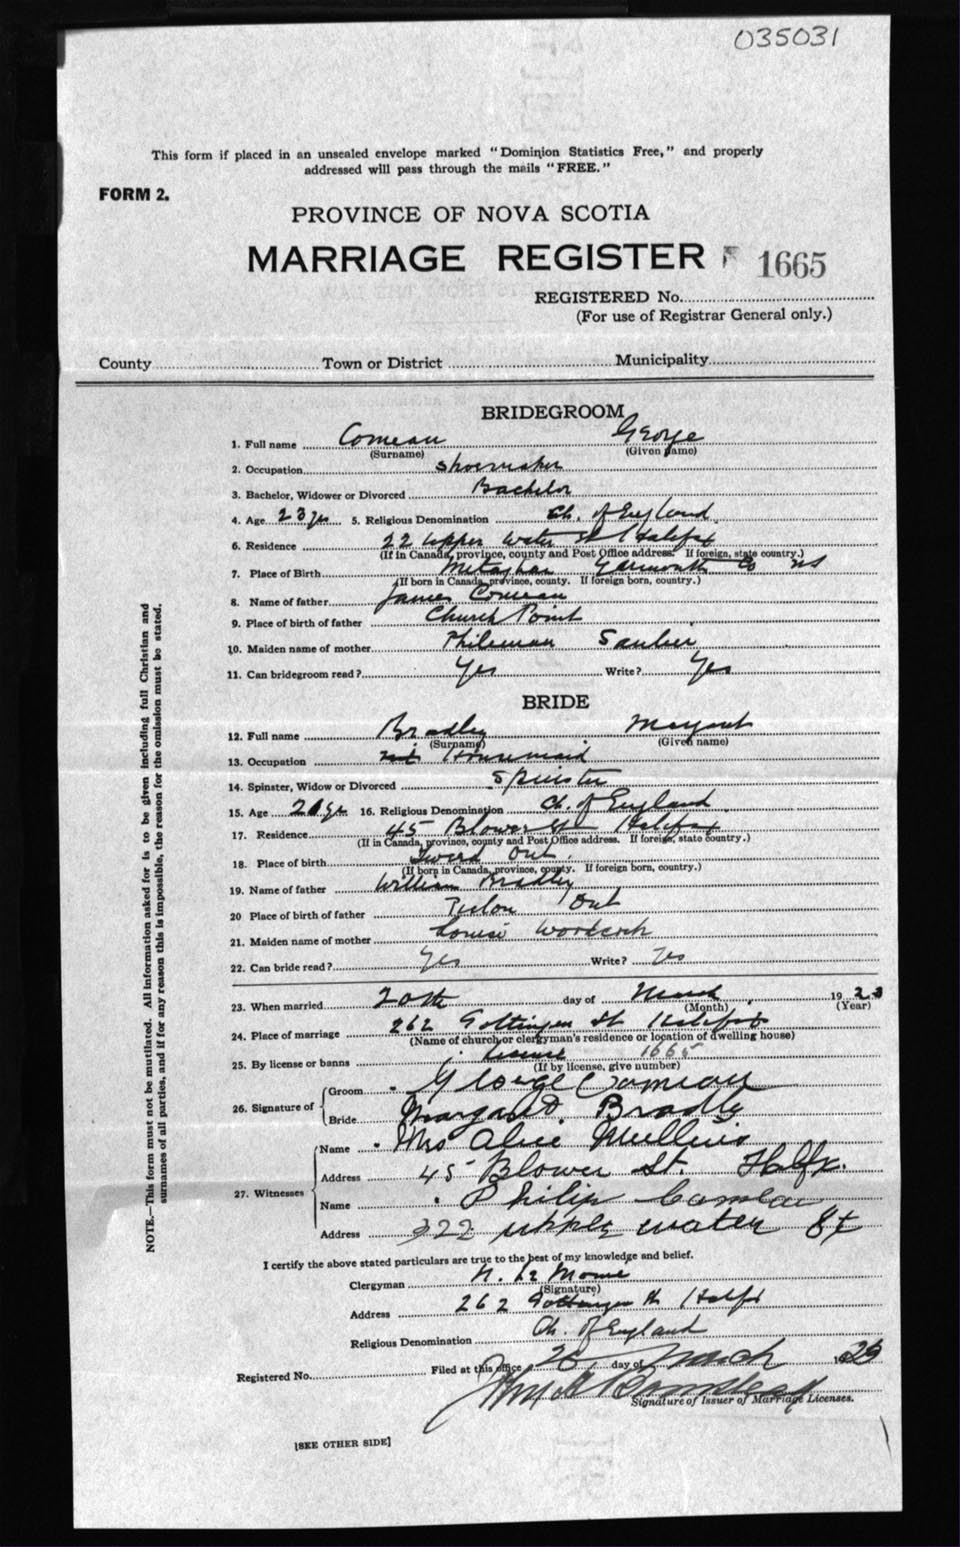 035031
This form if placed in an unsealed envelope marked "Dominion Statistics Free," and properly
addressed will pass through the mails "FREE."
FORM 2.
PROVINCE OF NOVA SCOTIA
MARRIAGE REGISTER 1665
REGISTERED No.
(For use of Registrar General only.)
County Town or District Municipality
BRIDEGROOM
1. Full name Comeau George
(Surname) (Given name)
2. Occupation Shoemaker
3. Bachelor, Widower or Divorced Bachelor
4. Age 23 yrs 5. Religious Denomination Ch. of England
6. Residence 22 Upper Water St Halifax
(If in Canada, province, county and Post Office address. If foreign, state country.)
7. Place of Birth Metaghan Yarmouth Co NS
(If born in Canada, province, county. If foreign born, country.)
8. Name of father James Comeau
9. Place of birth of father Church Point
10. Maiden name of mother
11. Can bridegroom read? Yes Write? Yes
BRIDE
12. Full name Bradley Margaret
(Surname) (Given name)
13. Occupation Housemaid
14. Spinster, Widow or Divorced Spinster
15. Age 20 yrs 16. Religious Denomination Ch. of England
17. Residence 45 Blower St Halifax
(If in Canada, province, county and Post Office address. If foreign, state country.)
18. Place of birth Tweed Ont.
(If born in Canada, province, county. If foreign born, country.)
19. Name of father William Bradley
20 Place of birth of father Ont
21. Maiden name of mother Louise
22. Can bride read? Yes Write? Yes
23. When married 20th day of March 1923
(Month) (Year)
24. Place of marriage 262 Gottingen St Halifax
(Name of church or clergyman's residence or location of dwelling house)
25. By license or banns license 1665
(If by license, give number)
26. Signature of Groom George Comeau
Bride Margaret Bradly
27. Witnesses Name Mrs Alice Mullins
Address 45 Blower St. Halfx.
Name Philip Comeau
Address 322 upple water St
I certify the above stated particulars are true to the best of my knowledge and belief.
Clergyman N. Le Moine
(Signature)
Address 262 Gottingen St Halifx
Religious Denomination Ch. of England
Registered No. Filed at this office 26 day of March 1923
Signature of Issuer of Marriage Licenses.
[SEE OTHER SIDE]
NOTE.—This form must not be mutilated. All information asked for is to be given including full Christian and
surnames of all parties, and if for any reason this is impossible, the reason for the omission must be stated.